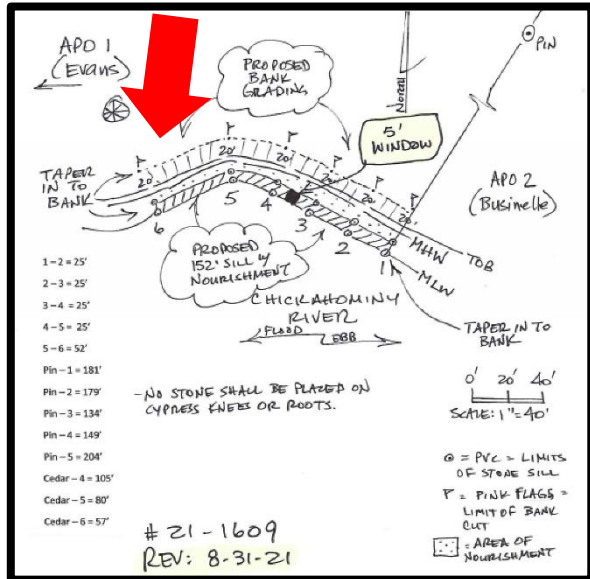 APO 1
(Evans)
PROPOSED
BANK
GRADING
PIN
5'
WINDOW
TAPER
IN TO
BANK
20'
20'
20'
20'
APO 2
(Businelle)
6
5
4
3
2
1
MHW
TOB
MLW
PROPOSED
152' SILL W/
NOURISHMENT
CHICKAHOMINY
RIVER
FLOOD
EBB
TAPER IN TO
BANK
1-2 = 25'
2-3 = 25'
3-4 = 25'
4-5 = 25'
5-6 = 52'
Pin-1 = 181'
Pin-2 = 179'
Pin-3 = 134'
Pin-4 = 149'
Pin-5 = 204'
Cedar-4 = 105'
Cedar-5 = 80'
Cedar-6 = 57'
-NO STONE SHALL BE PLACED ON
CYPRESS KNEES OR ROOTS.
0' 20' 40'
SCALE: 1"=40'
= PVC = LIMITS
OF STONE SILL
= PINK FLAGS =
LIMIT OF BANK
CUT
= AREA OF
NOURISHMENT
# 21-1609
REV: 8-31-21